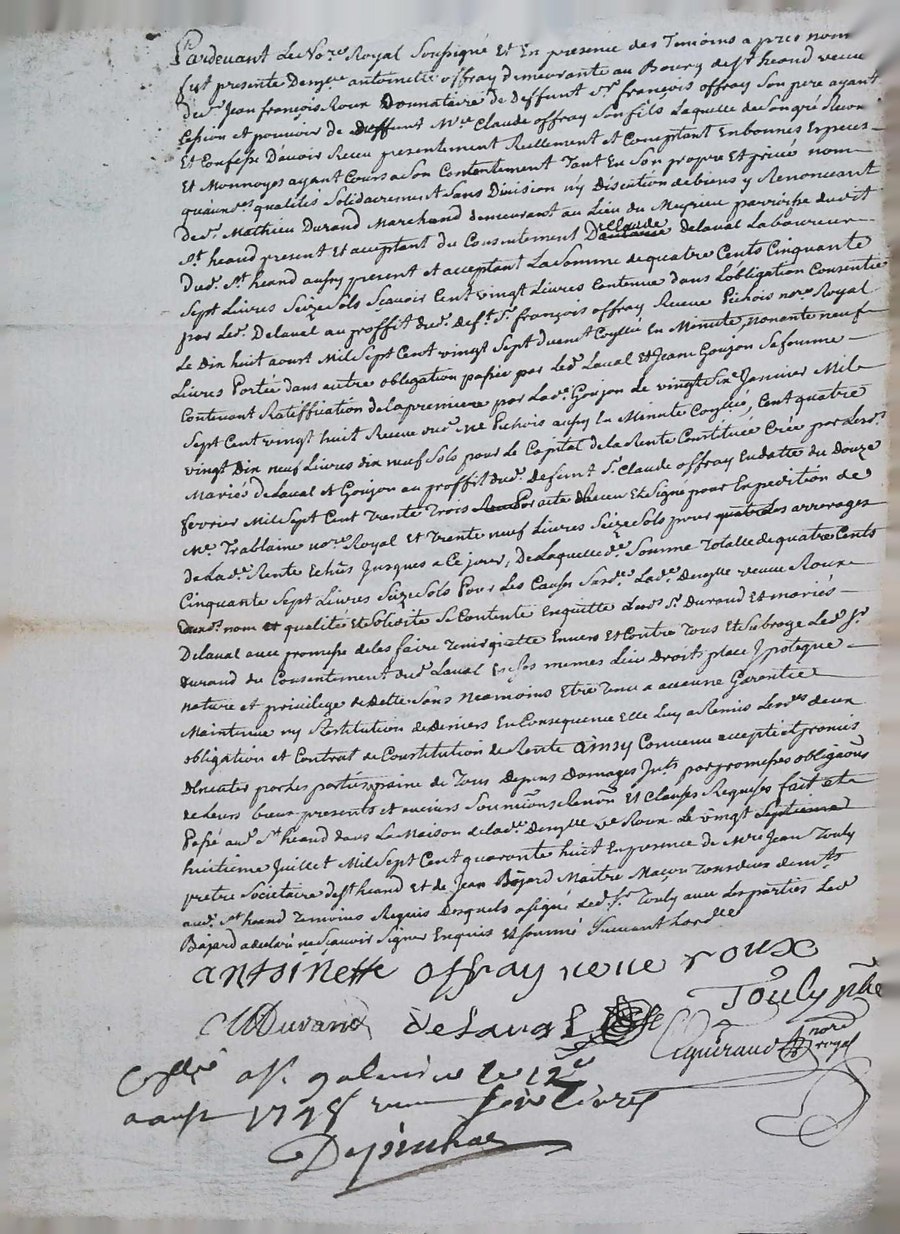 Pardevant Le No.re Royal Soussigné Et En presence des Temoins apres nom
fut presente Demlle antoinette offray demeurante au Bourg de St heand veuve
de Sr Jean françois Roux Donnataire de deffunt Sr françois offray Son pere ayant
Cession et pouvoir de Mre Claude offray Son fils Laquelle de Son gré
Et Confesse D'avoir Reçu presentement Reellement et Comptant En bonnes Especes
Et Monnoyes ayant Cours a Son Contentement Tant En Son propre Et privé nom
qu'aux.es qualités Solidairement Sans Division n'y Discution de biens y Renonceant
de Sr Mathieu Durand Marchand demeurant au Lieu du parroisse dudit
St heand present Et acceptant du Consentement De Claude delaval Laboureur
dud. St heand aussy present et acceptant La Somme de quatre Cents Cinquante
Sept Livres Seize Sols Sçavoir Cent vingt Livres Contenue dans L'obligation Consentie
par Led. Delaval au proffit dud. deft Sr françois offray Reçue Pichois nore Royal
Le Dix huit aoust Mil Sept Cent vingt Sept duement En Minute, nonante neuf
Livres Portée dans autre obligation passée par Led. Laval Et Jeane Goujon Sa femme
Contenant Ratiffication de la premiere par Lad. Goujon Le vingt Six Janvier Mil
Sept Cent vingt huit Reçue dud. Me Pichois aussy En Minute, Cent quatre
vingt Dix neuf Livres dix neuf Sols pour Le Capital de la Rente Constituée Créé par Lesds
Mariés de Laval Et Goujon au proffit dud. defunt Sr Claude offray En datte du Douze
fevrier Mil Sept Cent Trente Trois Reçu Et Signé pour Expedition de
Me Trablaine nore Royal Et Trente neuf Livres Seize Sols pour Les arrerages
de La de Rente Echûs Jusques a Ce jour, De Laquelle de Somme Totalle de quatre Cents
Cinquante Sept Livres Seize Sols Pour Les Causes Susde Lade Demlle veuve Roux
nom et qualité Et Solidité Se Contente En quitte Lesds Sr Durand Et mariés
Delaval avec promesse de les faire Tenir quitte Envers Et Contre Tous Et Subroge Led Sr
Durand du Consentement dud Laval Es Ses memes Lieu Droits place Ipoteque
nature et privilege de dette Sans neamoins Etre Tenu a aucune Garantie
Maintenue ny Restitution de deniers En Consequence Elle Luy a Remis Lesdes deux
obligation et Contrat de Constitution de Rente ainsy Convenu accepté et promis
observer par les parties a paine de Tous Depens Domages Jnts par promesses obligaons
de Leurs biens presents et avenirs Soumissions Renons Et Clauses Requises fait et
Passé aud. St heand dans La Maison de la de Demlle ve Roux Le vingt
huitieme Juillet Mil Sept Cent quarante huit En presence de Mre Jean Touly
pretre Societaire de St heand Et de Jean Bajard Maitre Maçon
aud. St heand Temoins Requis Desquels a Signé led. Sr Touly avec Les parties Led
Bajard a declaré ne Sçavoir Signer Enquis et Sommé Suivant Lordce
antoinette offray veuve roux
Touly ptre
MDurand delaval
Eyguiraud nore royal
a St galmier le 12e
aoust 1748 reçu livres